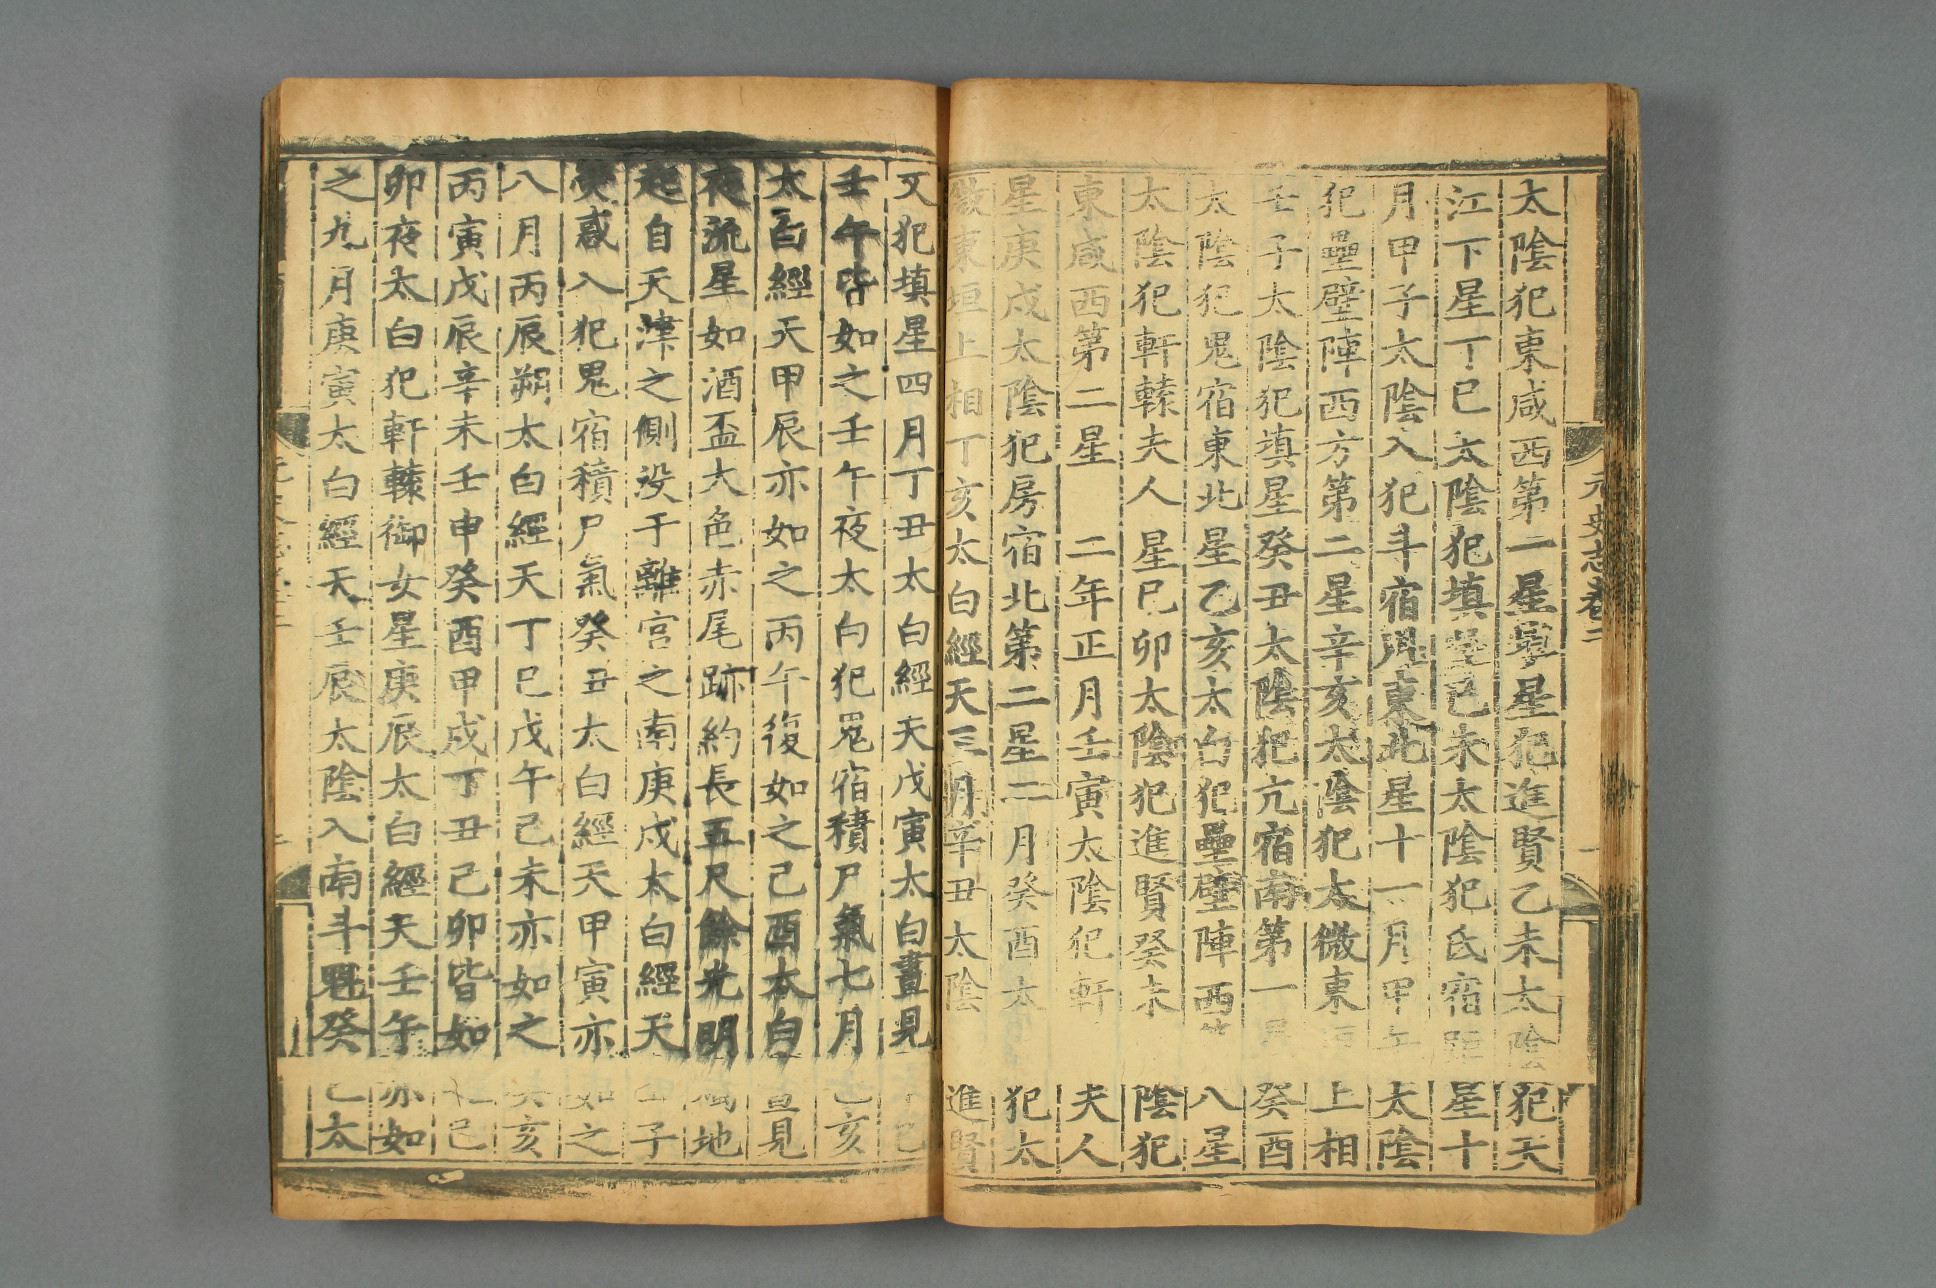 元史志卷二
太陰犯東咸西第一星星犯進賢乙未太陰犯天
江下星丁巳太陰犯填星己未太陰犯氐宿距星十
月甲子太陰入犯斗宿魁東北星十一月甲午太陰
犯壘壁陣西方第二星辛亥太陰犯太微東垣上相
壬子太陰犯填星癸丑太陰犯亢宿南第一星癸酉
太陰犯鬼宿東北星乙亥太白犯壘壁陣西第八星
太陰犯軒轅夫人星己卯太陰犯進賢癸未陰犯
東咸西第二星 二年正月壬寅太陰犯軒夫人
星庚戌太陰犯房宿北第二星二月癸酉太犯太
微東垣上相丁亥太白經天三月辛丑太陰進賢
又犯填星四月丁丑太白經天戊寅太白晝見
壬午皆如之壬午夜太白犯鬼宿積尸氣七月乙亥
太白經天甲辰亦如之丙午復如之己酉太白晝見
夜流星如酒盃大色赤尾跡約長五尺餘光明燭地
起自天津之側没于離宮之南庚戌太白經天甲子
熒惑入犯鬼宿積尸氣癸丑太白經天甲寅亦如之
八月丙辰朔太白經天丁巳戊午己未亦如之癸亥
丙寅戊辰辛未壬申癸酉甲戌丁丑己卯皆如之己
卯夜太白犯軒轅御女星庚辰太白經天壬午亦如
之九月庚寅太白經天壬辰太陰入南斗魁癸巳太